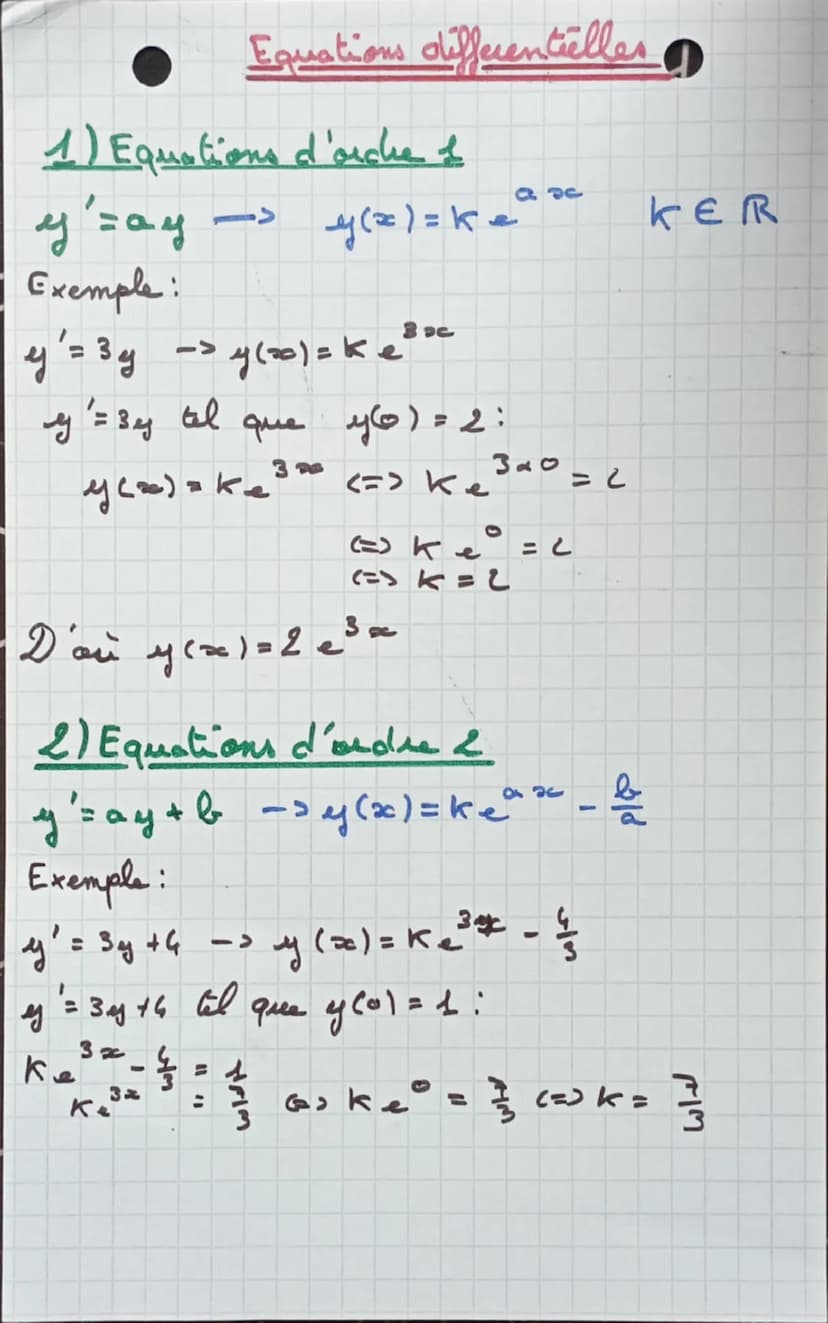 Equations différentielles
1) Equations d'ordre 1
y' = ay —> y(x) = k e^{ax} k ∈ ℝ
Exemple :
y' = 3y —> y(x) = k e^{3x}
y' = 3y tel que y(0) = 2 :
y(x) = k e^{3x} <=> k e^{3×0} = 2
<=> k e^0 = 2
<=> k = 2
D'où y(x) = 2 e^{3x}
2) Equations d'ordre 2
y' = ay + b —> y(x) = k e^{ax} - b/a
Exemple :
y' = 3y + 4 —> y(x) = k e^{3x} - 4/3
y' = 3y + 4 tel que y(0) = 1 :
k e^{3x} - 4/3 = 1
k e^{3x} = 7/3 <=> k e^0 = 7/3 <=> k = 7/3